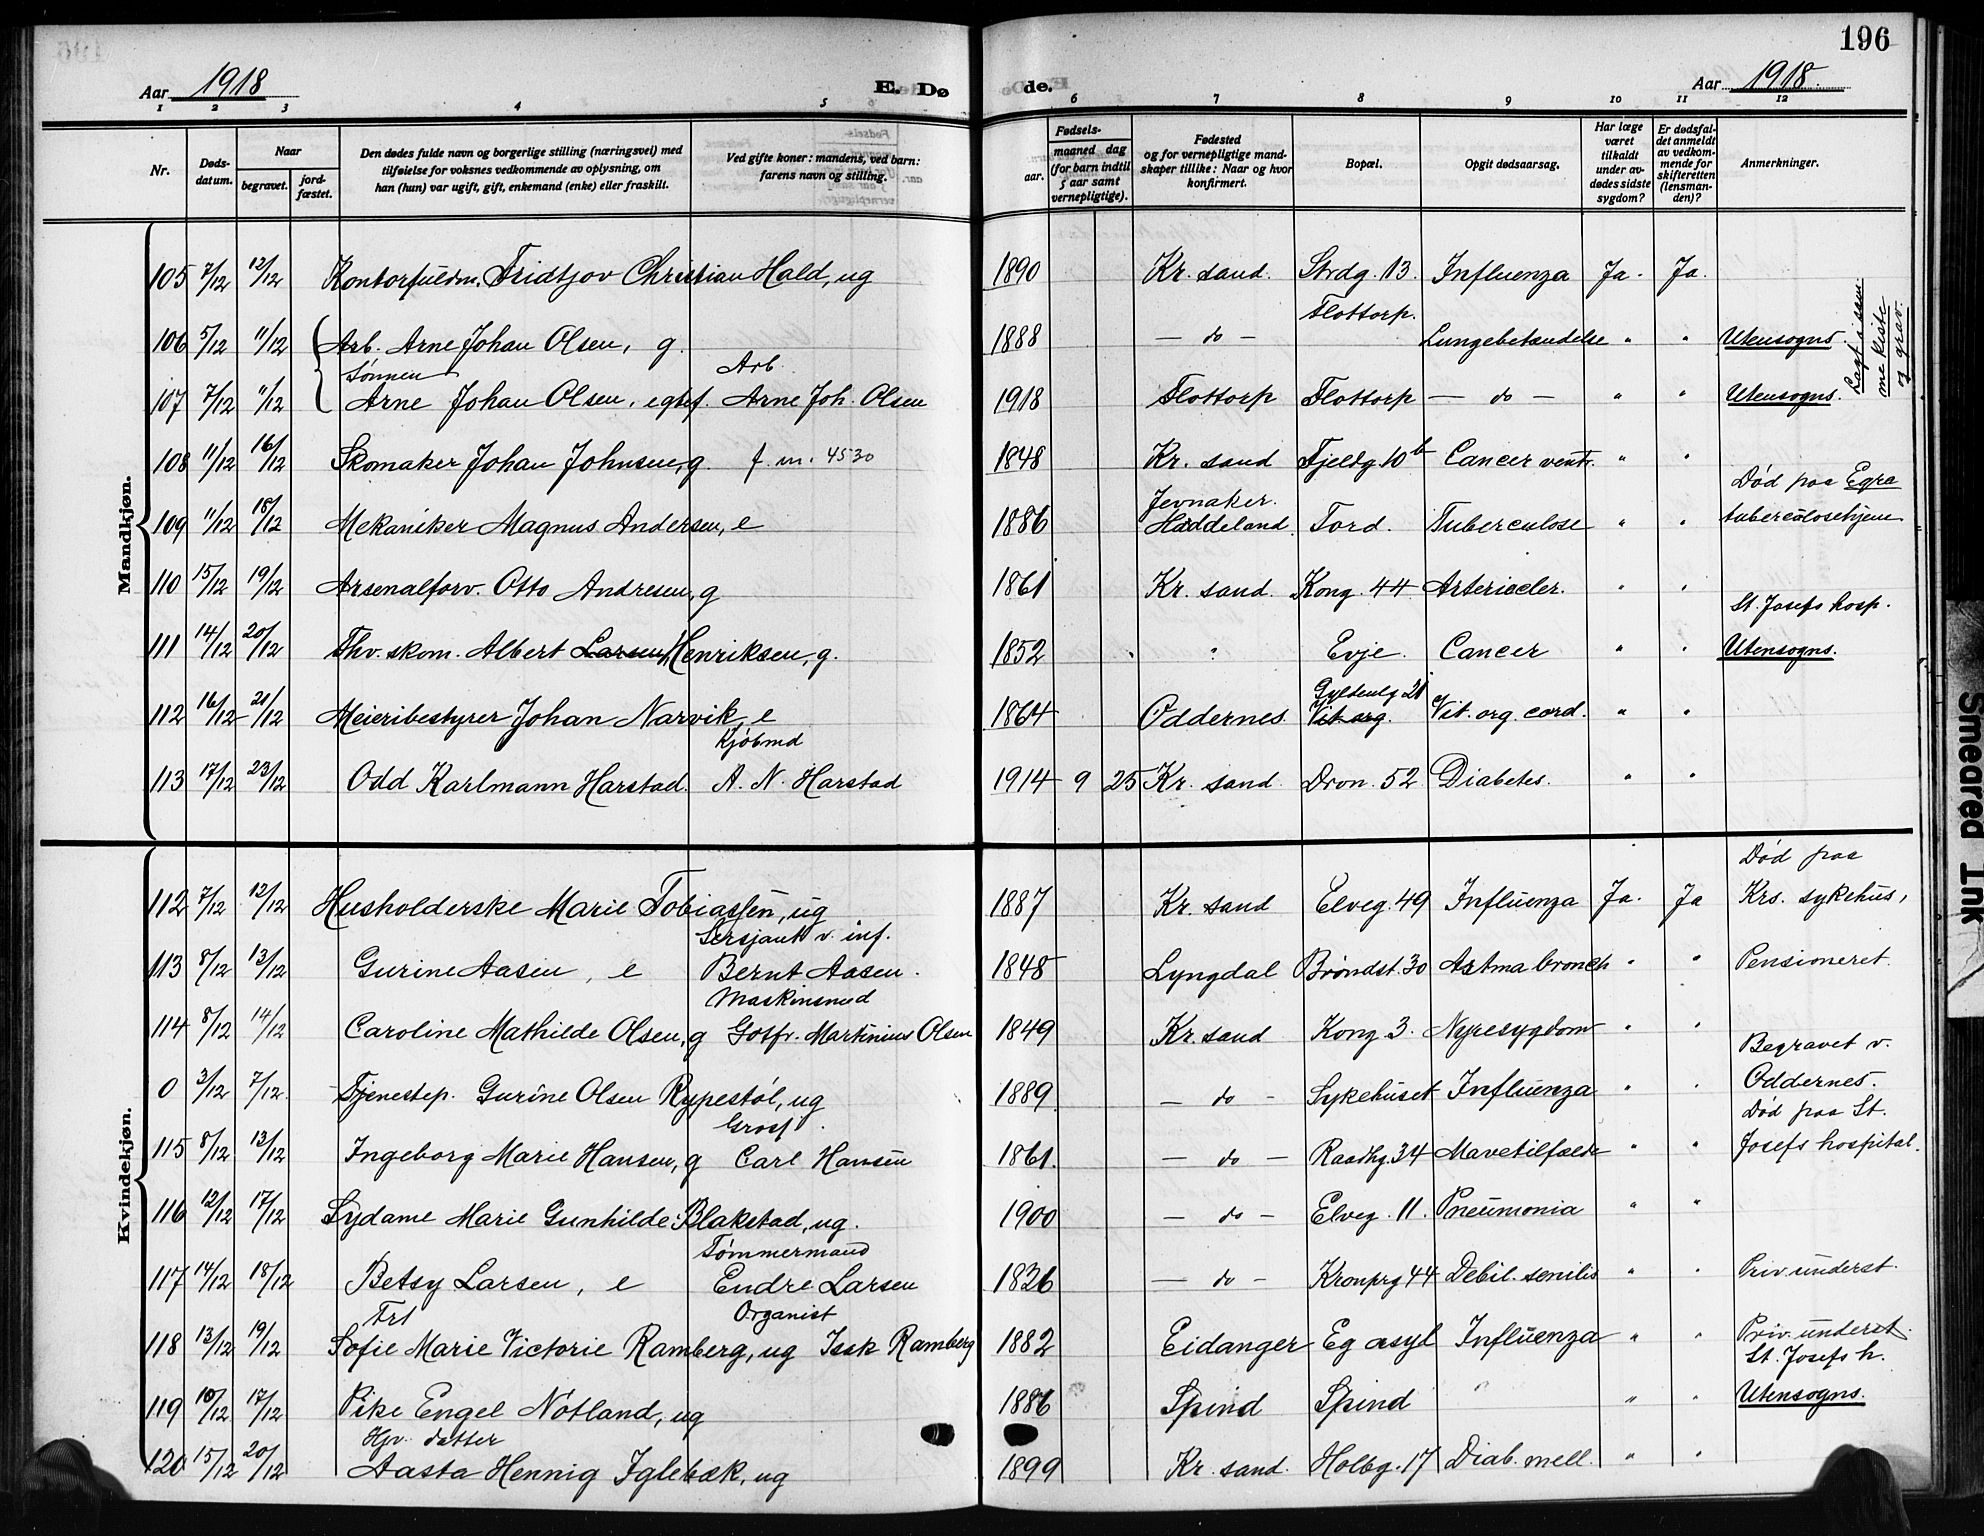 196
Aar 1918 E. Dø de. Aar 1918
1 2 3 4 5 6 7 8 9 10 11 12
Nr. Døds-datum. Naar begravet. jord-fæstet. Den dødes fulde navn og borgerlige stilling (næringsvei) med tilføielse for voksnes vedkommende av oplysning, om han (hun) var ugift, gift, enkemand (enke) eller fraskilt. Ved gifte koner: mandens, ved barn: farens navn og stilling. Fødsels- aar. maaned dag (for barn indtil 5 aar samt vernepligtige). Fødested og for vernepligtige mand-skaper tillike: Naar og hvor konfirmert. Bopæl. Opgit dødsaarsag. Har læge været tilkaldt under av-dødes sidste sygdom? Er dødsfal-det anmeldt av vedkom-mende for skifteretten (lensman-den)? Anmerkninger.
Mandkjøn.
105 7/12 12/12 Kontorfuldm. Fridtjov Christian Hald, ug 1890 Kr. sand. Strdg. 13. Influenza Ja. Ja.
Flottorp.
106 5/12 11/12 Arb. Arne Johan Olsen, g. 1888 — do — Lungebetændelse " " Utensogns.
Sønnen Arb.
107 7/12 11/12 Arne Johan Olsen, egtef. Arne Joh. Olsen 1918 Flottorp Flottorp — do — " " Utensogns.
Lagt i sam-
me kiste
og grav.
108 11/12 16/12 Skomaker Johan Johnsen, g. f. m. 4530 1848 Kr. sand Fjeldg. 10 b Cancer ventr. " "
Jevnaker. Død paa Egra
109 11/12 18/12 Mekaniker Magnus Andersen, e 1886 Haddeland. Tord. Tuberculose " " tuberculosehjem
110 15/12 19/12 Arsenalforv. Otto Andresen, g 1861 Kr. sand. Kong. 44 Arterioscler. " "
St. Josefs hosp.
111 14/12 20/12 Fhv. skom. Albert Larsen Henriksen, g. 1852 " Evje. Cancer " " Utensogns.
Gyldenlg 21
112 16/12 21/12 Meieribestyrer Johan Narvik, e 1864 Oddernes Vit. org. Vit. org. cord. " "
Kjøbmd
113 17/12 23/12 Odd Karlmann Harstad. A. N. Harstad 1914 9 25 Kr. sand. Dron. 52. Diabetes. " "
Kvindekjøn.
Død paa
112 7/12 12/12 Husholderske Marie Tobiassen, ug 1887 Kr. sand Elveg. 49 Influenza Ja. Ja Krs. sykehus,
Sersjant v. inf.
113 8/12 13/12 Gurine Aasen, e Bernt Aasen. 1848 Lyngdal Brøndst. 30 Astma bronch " " Pensioneret
Maskinsmed
114 8/12 14/12 Caroline Mathilde Olsen, g Gotfr. Martinius Olsen 1849 Kr. sand Kong. 3. Nyresygdom " "
Begravet v.
0 3/12 7/12 Tjenestep. Gurine Olsen Rypestøl, ug 1889 — do — Sykehuset Influenza " " Oddernes.
Gross. Død paa St.
115 8/12 13/12 Ingeborg Marie Hansen, g Carl Hansen 1861. — do — Raadhg. 34 Mavetilfælde " " Josefs hospital.
116 12/12 17/12 Lydame Marie Gunhilde Blakstad, ug. 1900 — do — Elveg. 11. Pneumonia " "
Tømmermand
117 14/12 18/12 Betsy Larsen, e Endre Larsen 1836 — do — Kronprg 44 Debil. senilis " " Priv underst.
Frk Organist
118 13/12 19/12 Sofie Marie Victorie Ramberg, ug Issk Ramberg 1882 Eidanger Eg asyl Influenza " " Priv. underst.
St. Josefs h.
119 10/12 17/12 Pike Engel Nøtland, ug 1886 Spind Spind " " Utensogns.
Hjv. datter
120 15/12 20/12 Aasta Hennig Iglebæk, ug 1899 Kr. sand. Holbg. 17 Diab. mell. " "
Smeared Ink